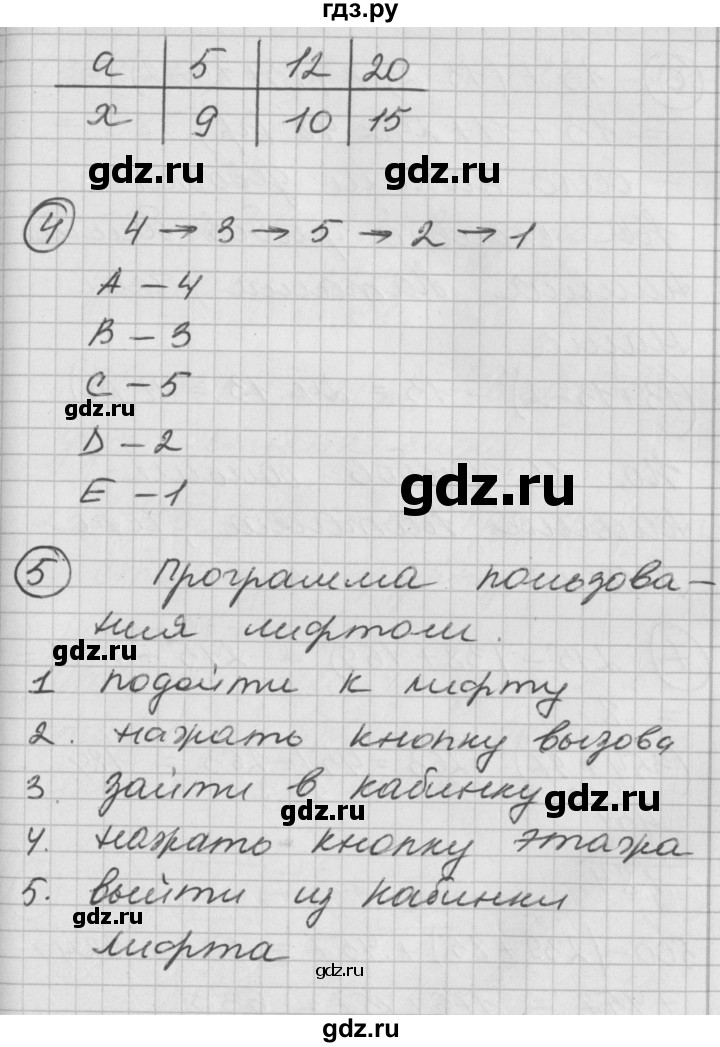 гдз.ру
a 5 12 20
x 9 10 15
gdz.ru gdz.ru
4 4 → 3 → 5 → 2 → 1
A – 4
B – 3
C – 5
gdz.ru
D – 2
gdz.ru
E – 1
5 Программа пользова-
ния лифтом.
gdz.ru
1 подойти к лифту
2. нажать кнопку вызова
3. зайти в кабинку
gdz.ru gdz.ru
4. нажать кнопку этажа
5. выйти из кабинки
gdz.ru
лифта
gdz.ru
gdz.ru